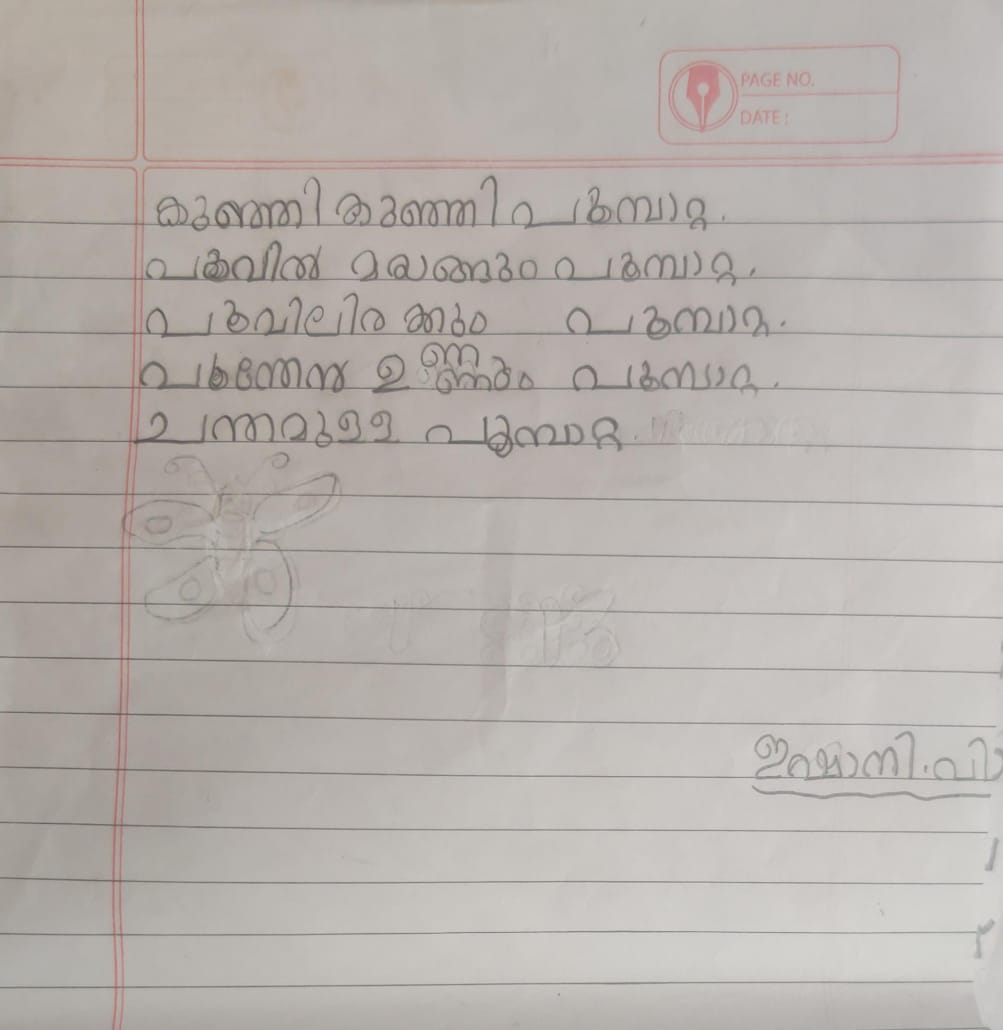 PAGE NO.
DATE:
കുഞ്ഞി കുഞ്ഞി പൂമ്പാറ്റ.
പൂവിൽ മയങ്ങും പൂമ്പാറ്റ.
പൂവിലിരിക്കും പൂമ്പാറ്റ.
പൂന്തേൻ ഉണ്ണും പൂമ്പാറ്റ.
ചന്തമുള്ള പൂമ്പാറ്റ.
ഇഷാനി.വി